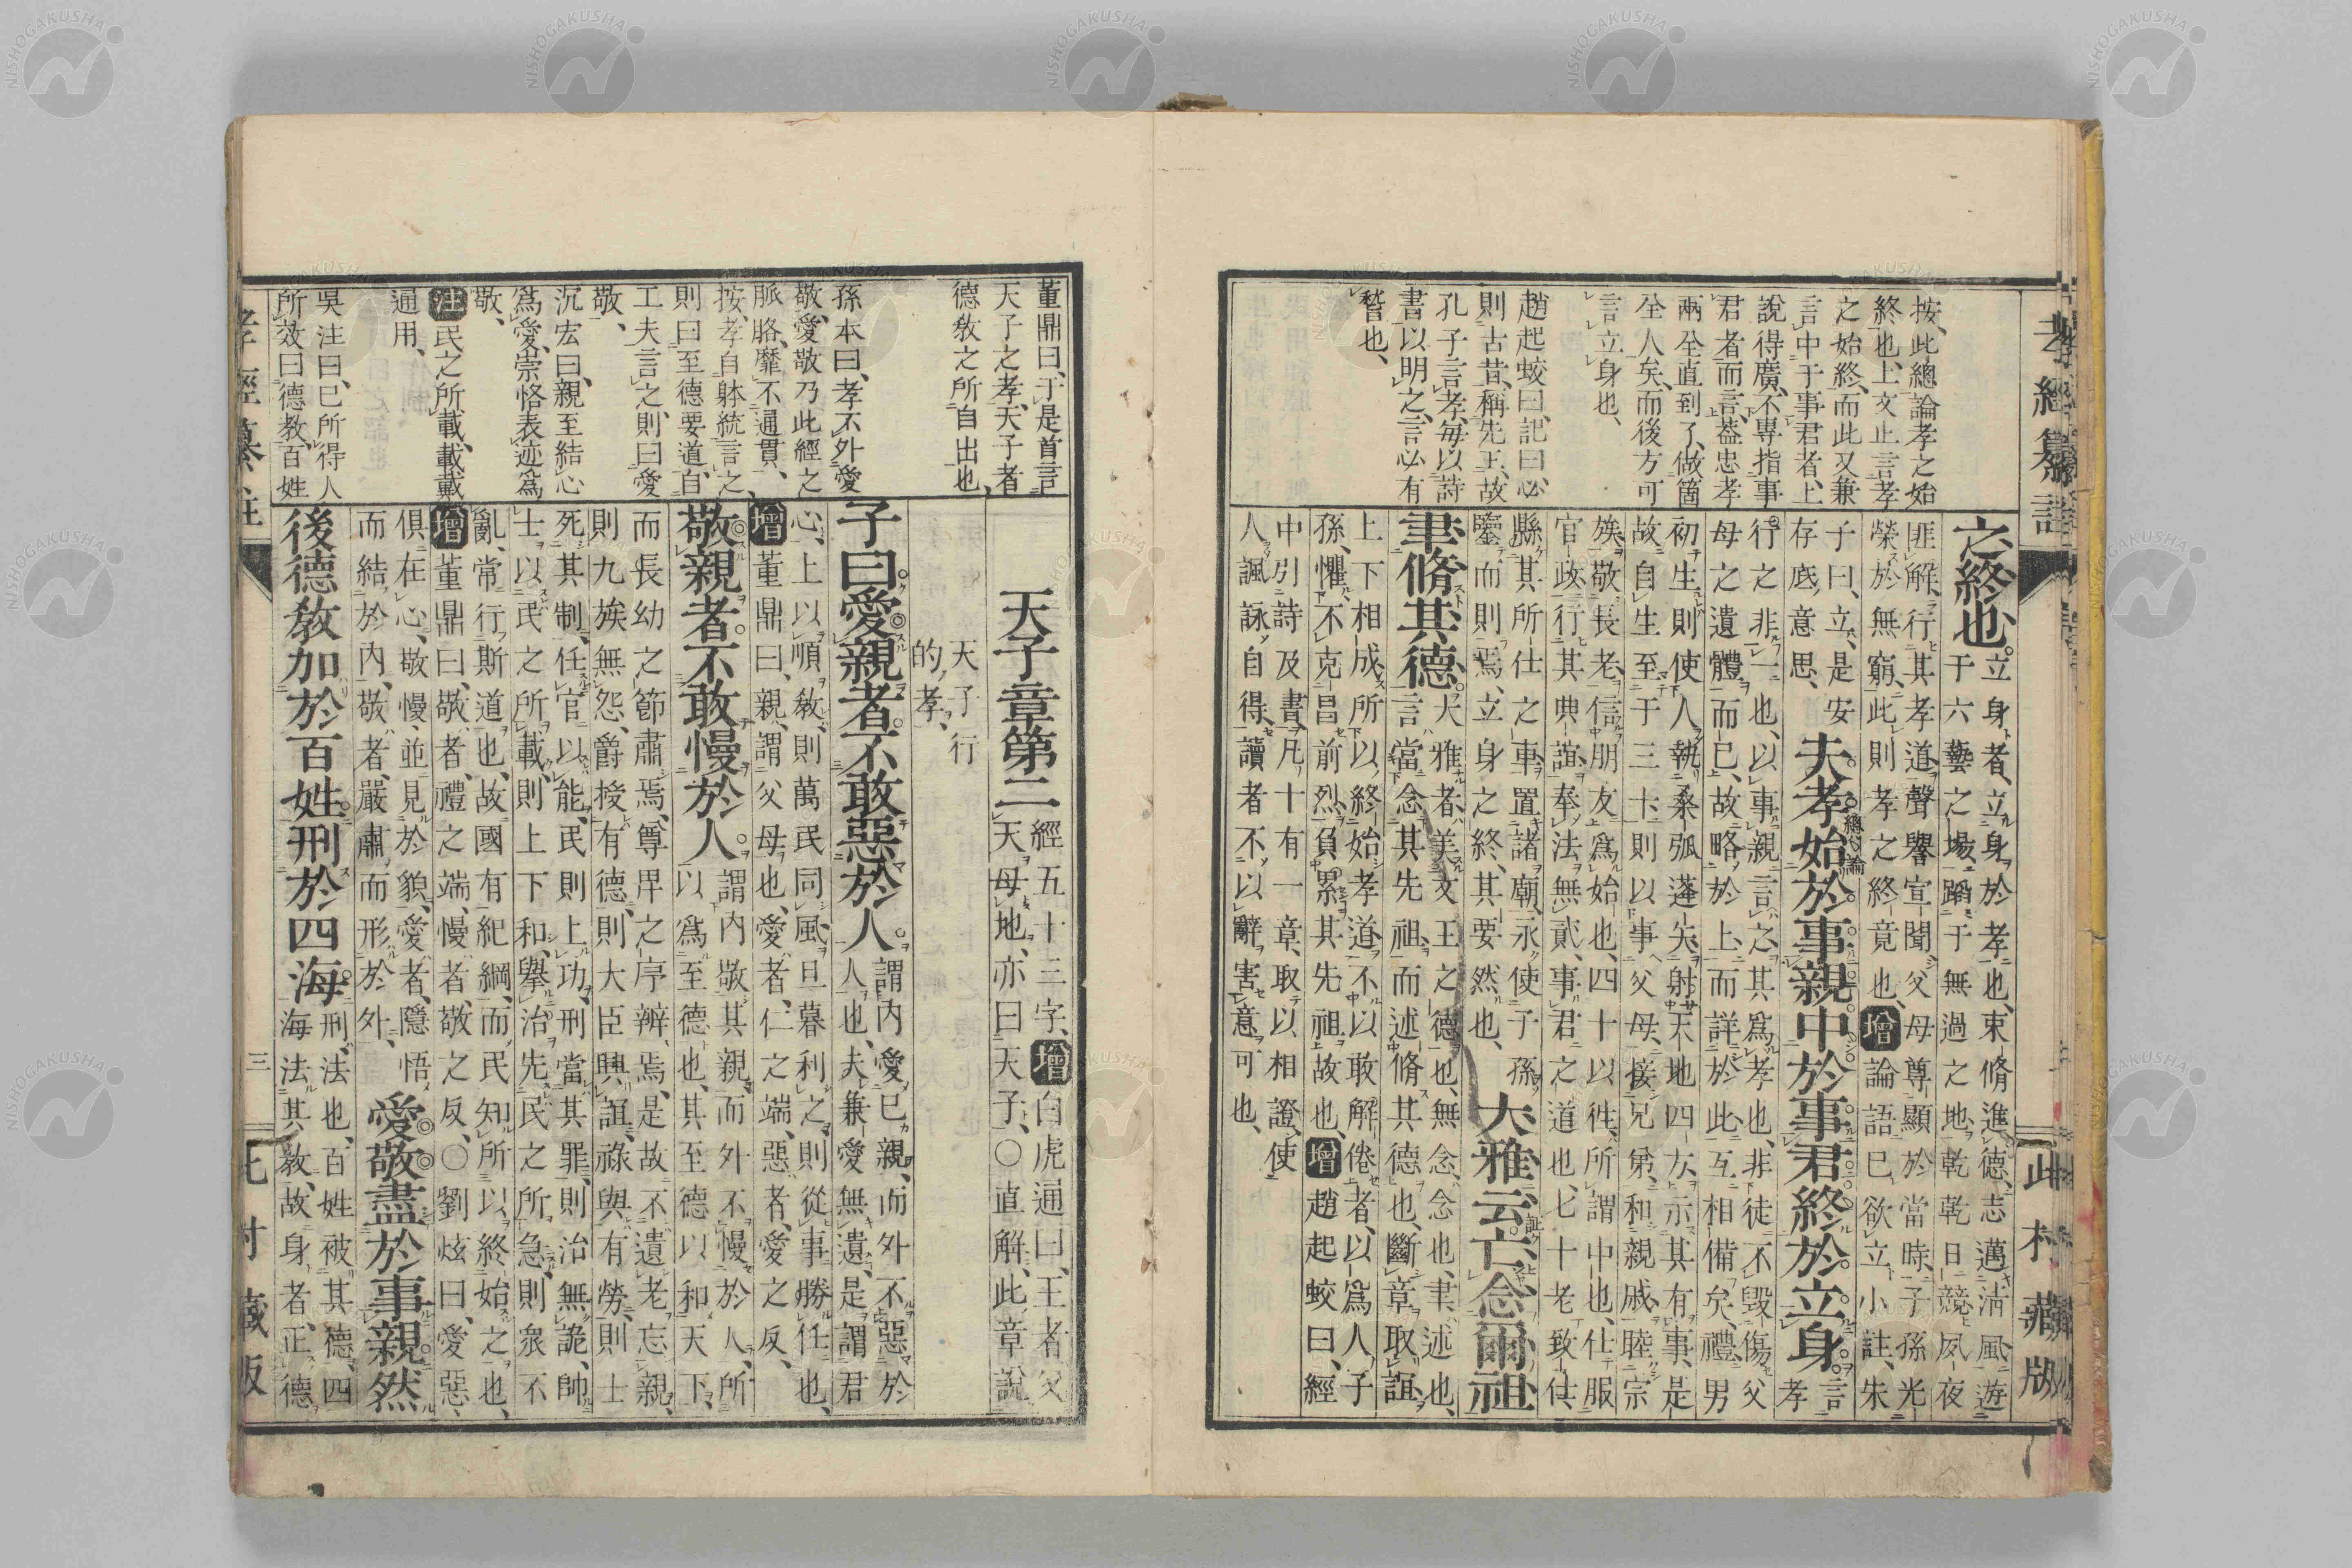 孝經纂註
此村藏版
按、此總論孝之始
終也、上文止言孝
之始終、而此又兼
言中于事君者、上
說得廣、不專指事
君者而言、蓋忠孝
兩全直到了、做箇
全人矣、而後方可
言立身也、
趙起蛟曰、記曰、必
則古昔、稱先王、故
孔子言孝、每以詩
書以明之、言必有
稽也、
之終也。
立身者、立身於孝也、束脩進德、志邁淸風、遊
于六藝之場、蹈于無過之地、乾乾日競、夙夜
匪解、行其孝道、聲譽宣聞、父母尊顯於當時、子孫光
榮於無窮、此則孝之終竟也、增論語已欲立小註、朱
子曰、立、是安
存底意思、
夫孝始於事親。中於事君。終於立身。
總論
言
孝
行之非一也、以事親言之、其爲孝也、非徒不毀傷父
母之遺體而已、故略於上、而詳於此、互相備矣、禮、男
初生、則使人執桑弧蓬矢、射天地四方、示其有事、是
故自生至于三十、則以事父母、接兄弟、和親戚、睦宗
族、敬長老、信朋友爲始也、四十以徃、所謂中也、仕服
官政、行其典誼、奉法無貳、事君之道也、七十老致仕、
縣其所仕之車、置諸廟、永使子孫
鑒而則焉、立身之終、其要然也、
大雅云。亡念爾祖
聿脩其德。
大雅者、美文王之德也、無念、念也、聿、述也、
言當念其先祖、而述脩其德也、斷章取誼、
上下相成、所以終始孝道、不以敢解倦者、以爲人子
孫、懼不克昌前烈、負累其先祖故也、增趙起蛟曰、經
中引詩及書、凡十有一章、取以相證、使
人諷詠自得、讀者不以辭害意可也、
董鼎曰、于是首言
天子之孝、天子者
德敎之所自出也、
孫本曰、孝不外愛
敬、愛敬乃此經之
脈胳、靡不通貫、
按、孝自躰統言之、
則曰至德要道、自
工夫言之、則曰愛
敬、
沉宏曰、親至結心
爲愛、崇恪表迹爲
敬、
注民之所載、載戴
通用、
吳注曰、已所得人
所效曰德教、百姓
天子章第二
經五十三字、增白虎通曰、王者父
天母地、亦曰天子、○直解、此章說
天子行
的孝、
子曰。愛親者。不敢惡於人。
謂內愛已親、而外不惡於
人也、夫兼愛無遺、是謂君
心、上以順敎、則萬民同風、旦暮利之、則從事勝任也、
增董鼎曰、親、謂父母也、愛者、仁之端、惡者、愛之反、
敬親者。不敢慢於人。
謂內敬其親、而外不慢於人、所
以爲至德也、其至德以和天下、
而長幼之節肅焉、尊畀之序辨焉、是故不遺老忘親、
則九族無怨、爵授有德、則大臣興誼、祿與有勞、則士
死其制、任官以能、民則上功、刑當其罪、則治無詭、帥
士以民之所載、則上下和、舉治先民之所急、則衆不
亂、常行斯道也、故國有紀綱、而民知所以終始之也、
增董鼎曰、敬者、禮之端、慢者、敬之反、○劉炫曰、愛惡、
俱在心、敬慢、並見於貌、愛者、隱悟
而結於內、敬者、嚴肅而形於外、
愛敬盡於事親。然
後德敎加於百姓。刑於四海。
刑、法也、百姓被其德、四
海法其敎、故身者、正德
三